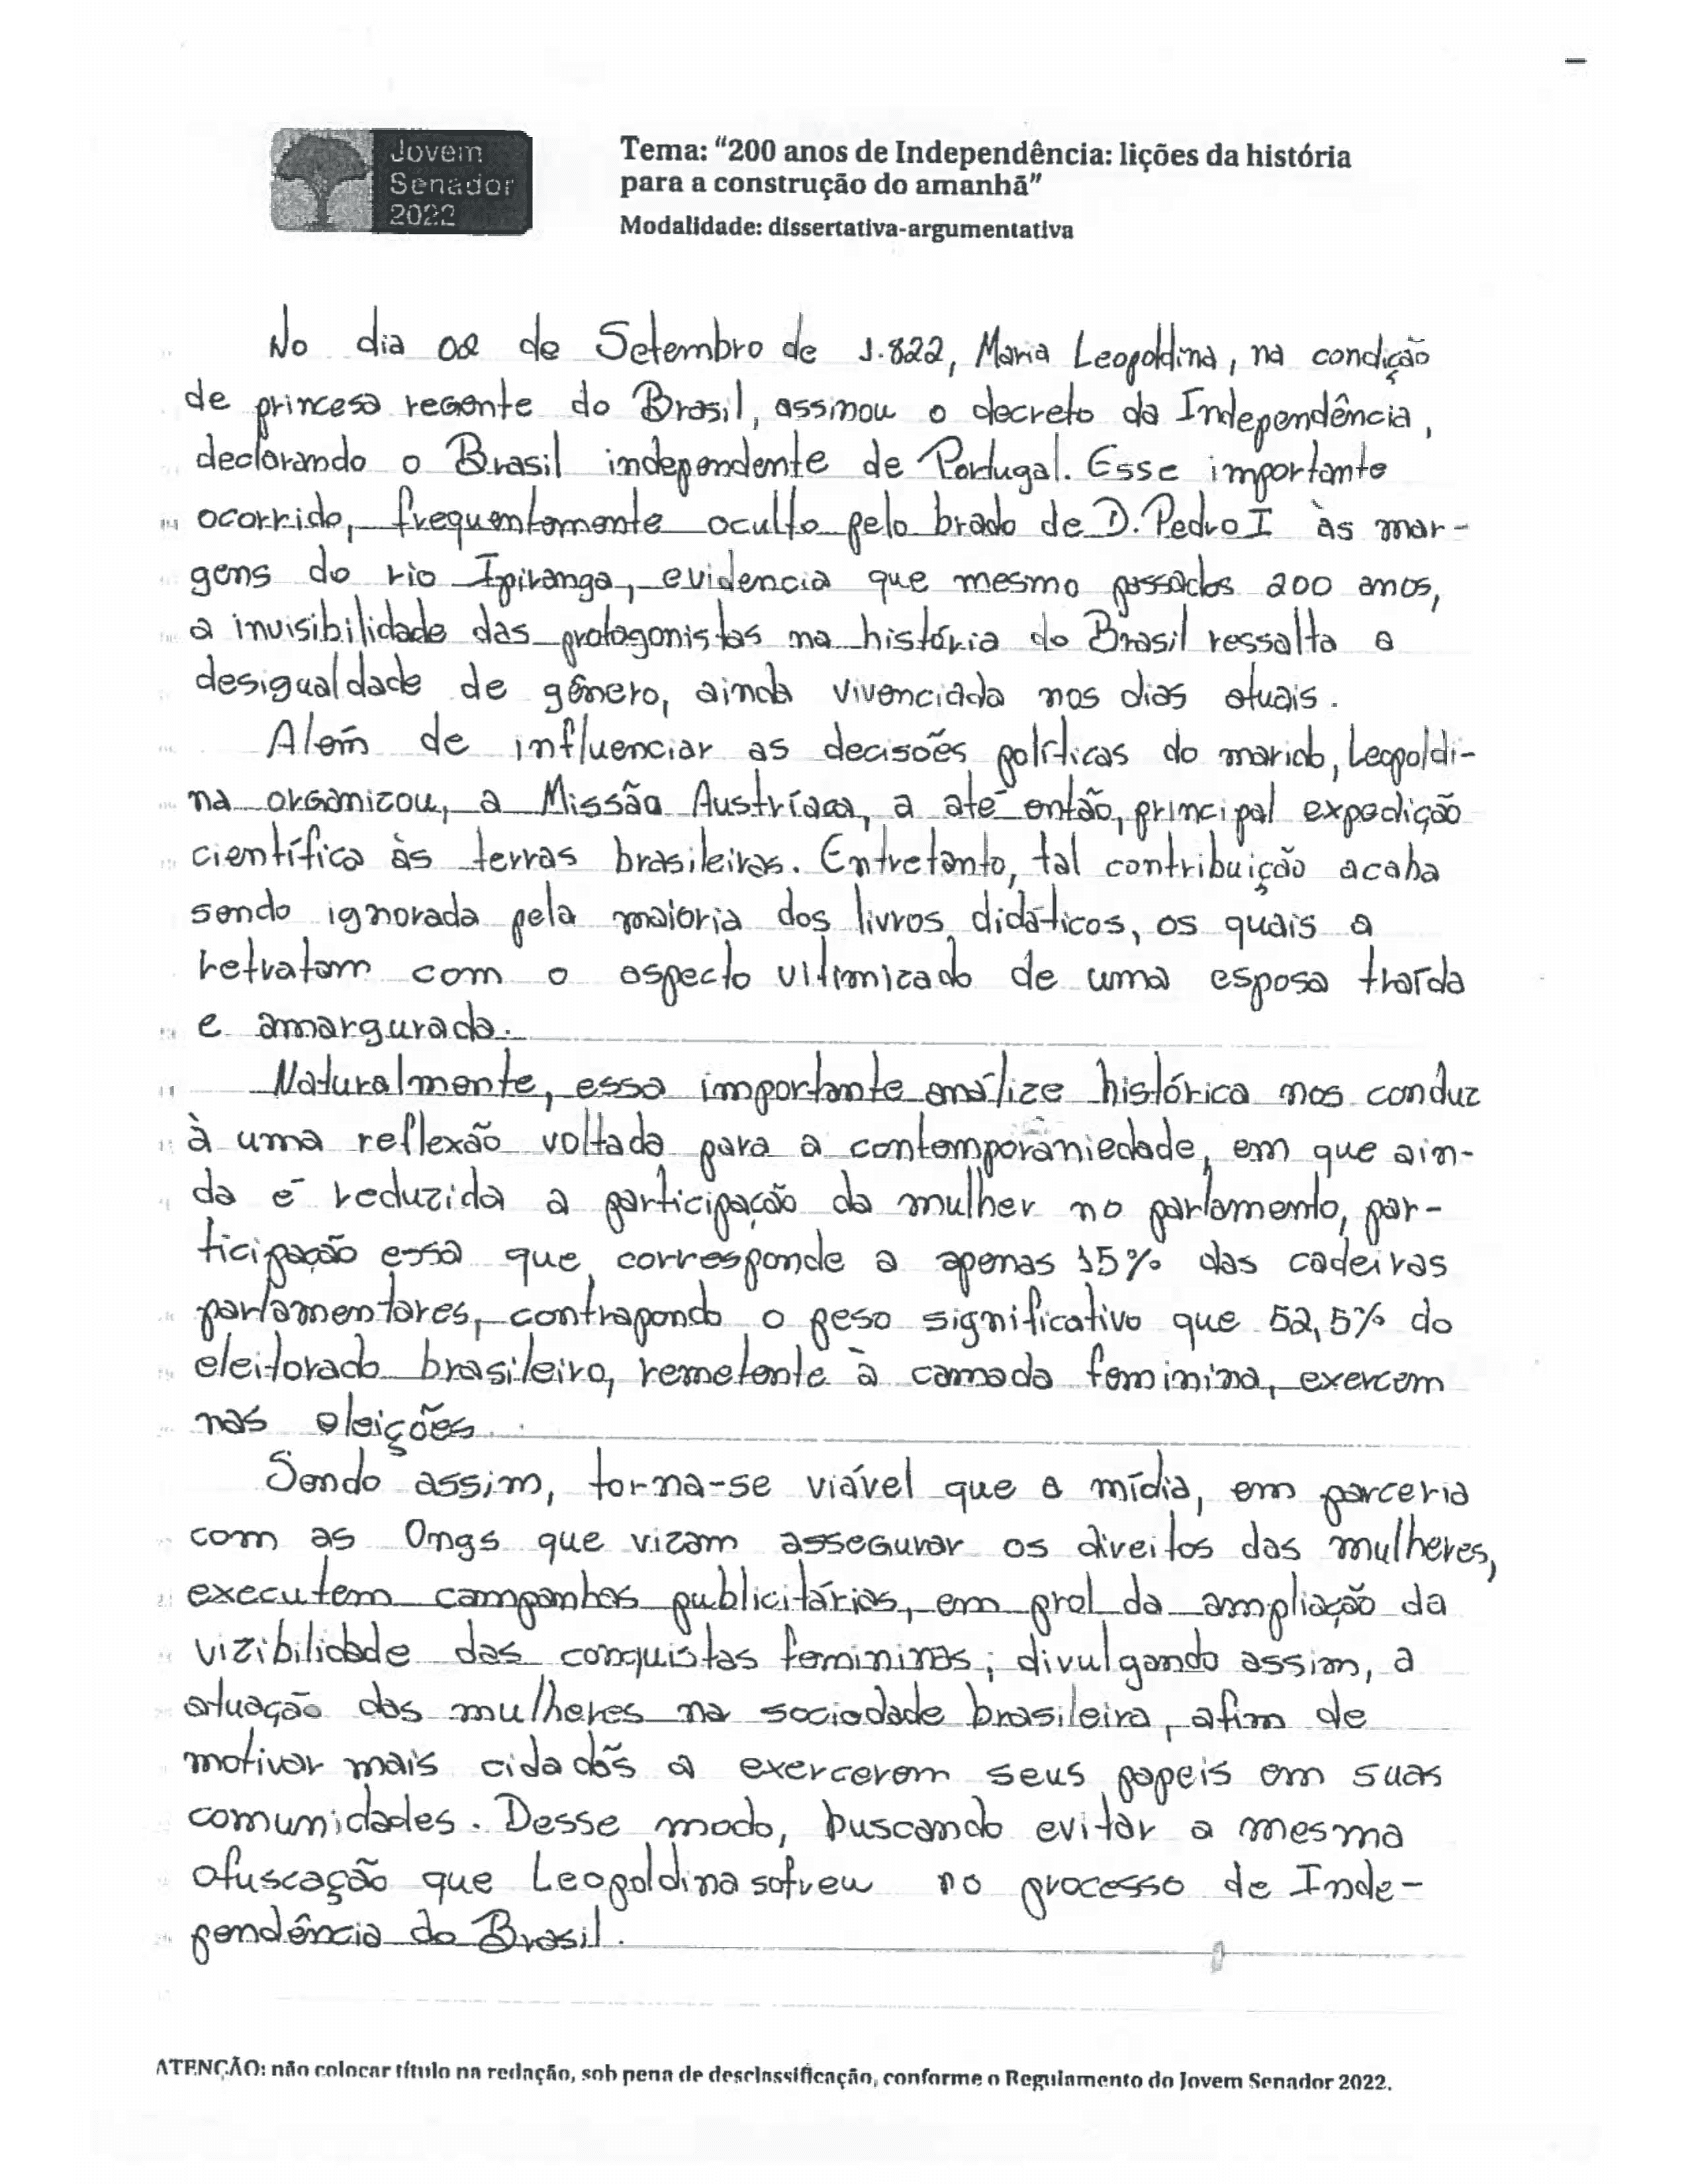 Jovem
Senador
2022
Tema: “200 anos de Independência: lições da história
para a construção do amanhã”
Modalidade: dissertativa-argumentativa
No dia 02 de Setembro de 1.822, Maria Leopoldina, na condição
de princesa regente do Brasil, assinou o decreto da Independência,
declarando o Brasil independente de Portugal. Esse importante
ocorrido, frequentemente oculto pelo brado de D. Pedro I às mar-
gens do rio Ipiranga, evidencia que mesmo passados 200 anos,
a invisibilidade das protagonistas na história do Brasil ressalta a
desigualdade de gênero, ainda vivenciada nos dias atuais.
Além de influenciar as decisões políticas do marido, Leopoldi-
na organizou, a Missão Austríaca, a até então, principal expedição
científica às terras brasileiras. Entretanto, tal contribuição acaba
sendo ignorada pela maioria dos livros didáticos, os quais a
retratam com o aspecto vitimizado de uma esposa traída
e amargurada.
Naturalmente, essa importante análize histórica nos conduz
à uma reflexão voltada para a contemporâniedade, em que ain-
da é reduzida a participação da mulher no parlamento, par-
ticipação essa que corresponde a apenas 15% das cadeiras
parlamentares, contrapondo o peso significativo que 52,5% do
eleitorado brasileiro, remetente à camada feminina, exercem
nas eleições.
Sendo assim, torna-se viável que a mídia, em parceria
com as Ongs que vizam assegurar os direitos das mulheres,
executem campanhas publicitárias, em prol da ampliação da
vizibilidade das conquistas femininas; divulgando assim, a
atuação das mulheres na sociedade brasileira, afim de
motivar mais cidadãs a exercerem seus papeis em suas
comunidades. Desse modo, buscando evitar a mesma
ofuscação que Leopoldina sofreu no processo de Inde-
pendência do Brasil.
ATENÇÃO: não colocar título na redação, sob pena de desclassificação, conforme o Regulamento do Jovem Senador 2022.